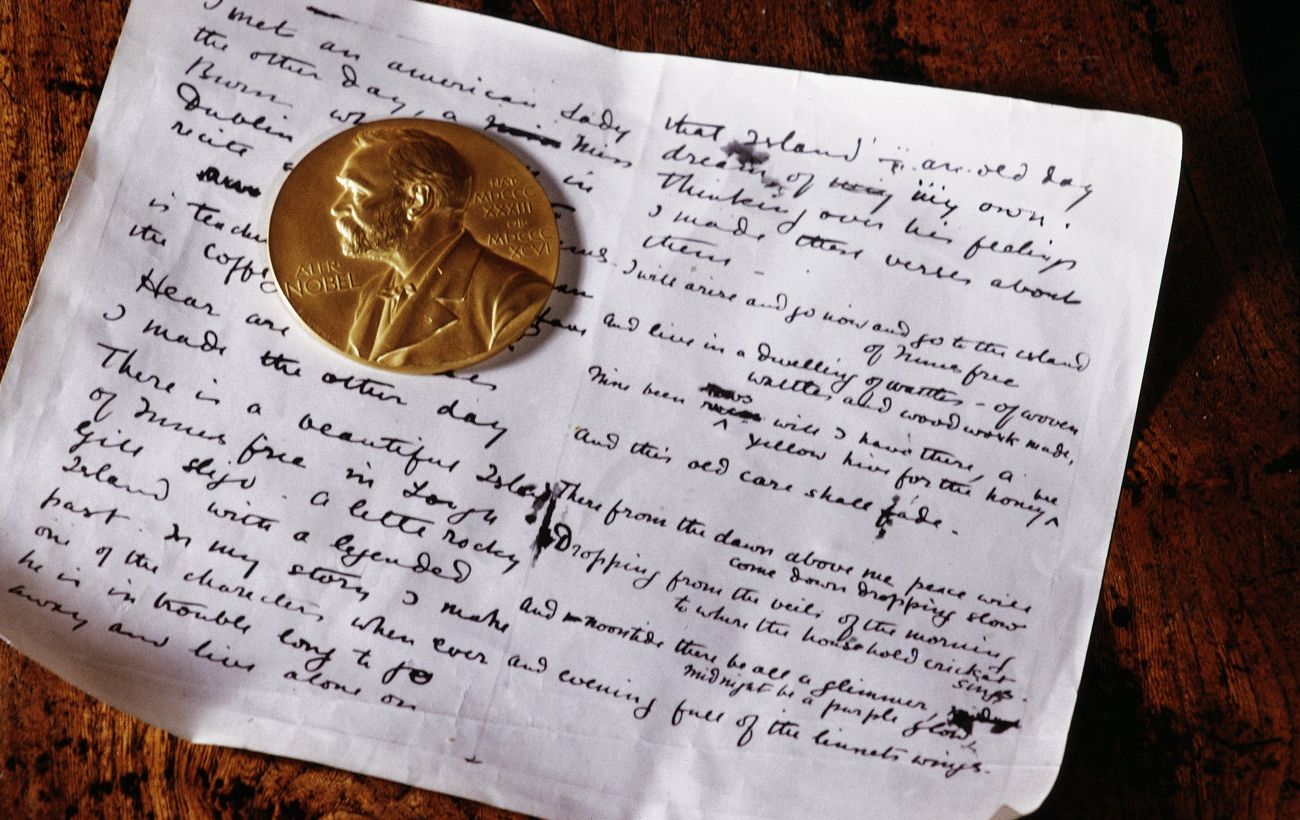 I met an american Lady
the other day, a Miss
Burn
Dublin
recite
is
the
Hear are
I made the other day
There is a beautiful Island
of Innis free in Lough
Gill Sligo. A little rocky
Island with a legended
past. In my story I make
one of the characters when ever
he is in trouble long to go
away and live alone on
ALFR.
NOBEL
NAT.
MDCCC
XXXIII
OB
MDCCC
XCVI
that Island – an old day
dream of my own.
Thinking over his feelings
I made these verses about
them –
I will arise and go now and go to the island
of Innis free
And live in a dwelling of wattles – of woven
wattles and wood work made,
Nine bean rows will I have there, a
yellow hive for the honey bee
And this old care shall fade.
There from the dawn above me peace will
come down dropping slow
Dropping from the veils of the morning
to where the household cricket
sings.
And noontide there be all a glimmer,
midnight be a purple glow,
And evening full of the linnets wings.